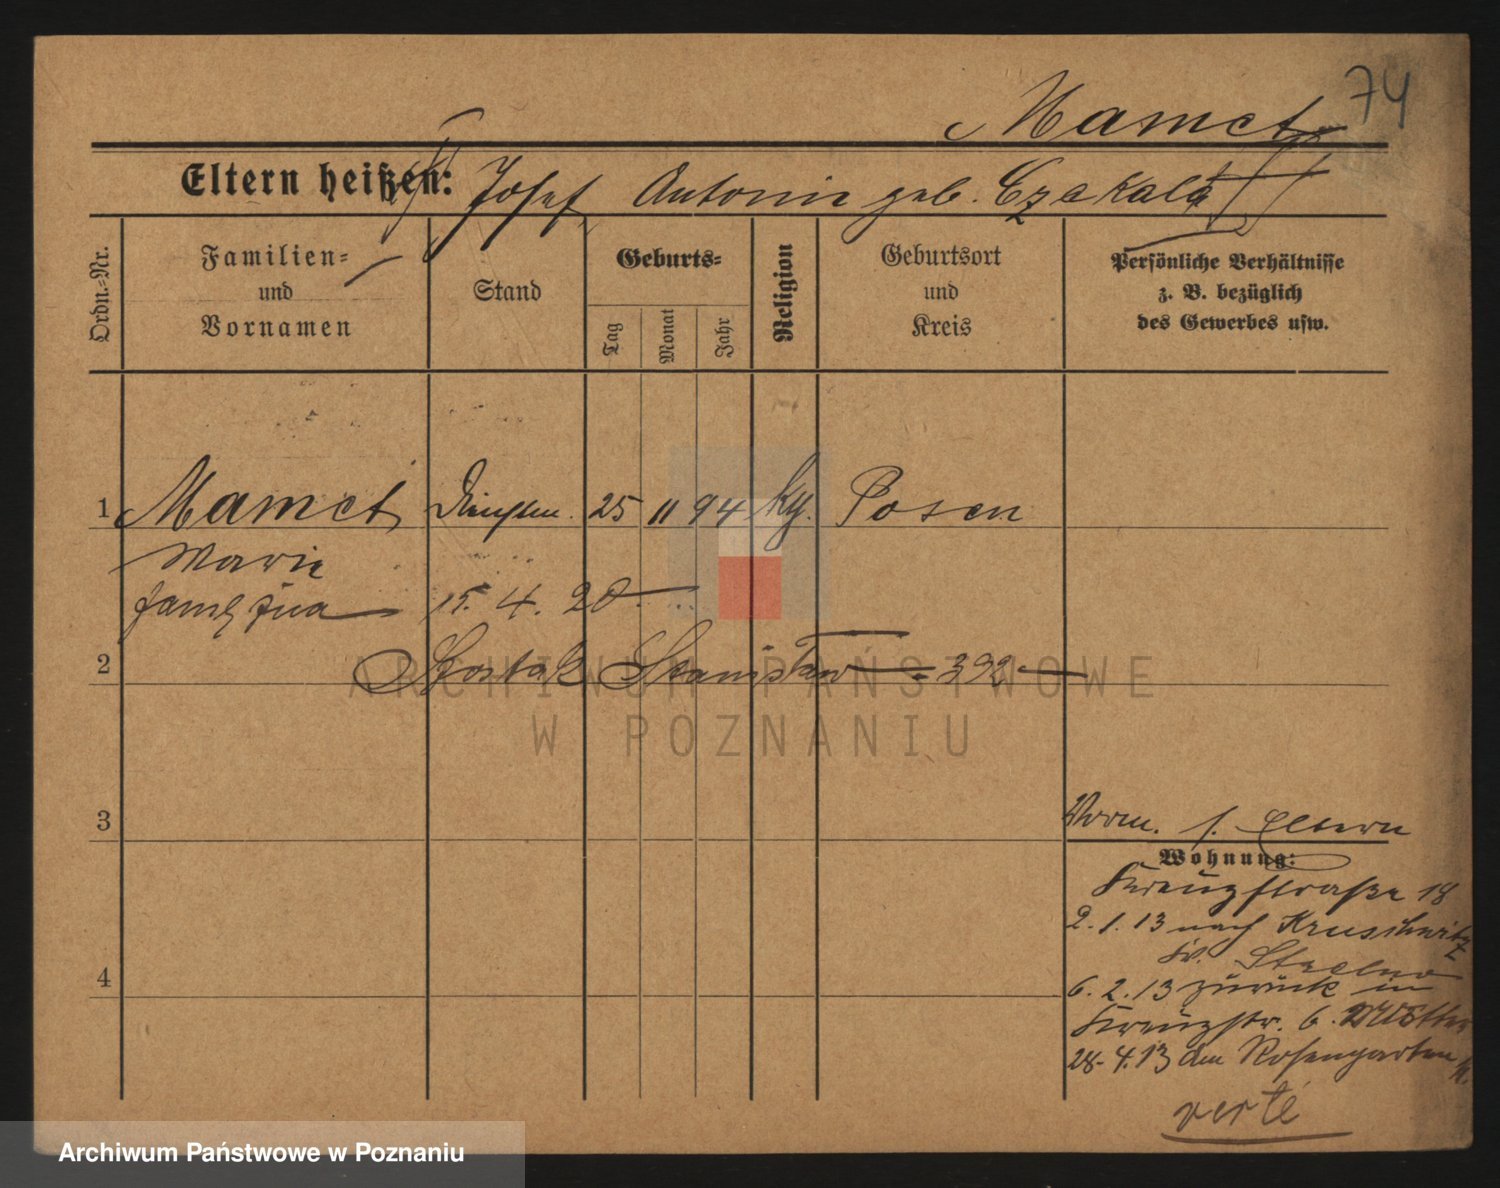 74
Mamet
Eltern heißen: Josef, Antonie geb. Czekala
Ordn.-Nr.
Familien-
und
Vornamen
Stand
Geburts-
Tag
Monat
Jahr
Religion
Geburtsort
und
Kreis
Persönliche Verhältnisse
z. B. bezüglich
des Gewerbes usw.
1 Mamet 25 11 94 Posen
Marie
15. 4. 20
2 Szostak Stanisław - 392
3
Vorm. s. Eltern
Wohnung:
Kreuzstraße 18
2.1.13 nach Kruschwitz
Kr. Strelno
4
6.2.13 zurück in
Kreuzstr. 6.
28.4.13 Rosengarten
verté
ARCHIWUM PAŃSTWOWE
W POZNANIU
Archiwum Państwowe w Poznaniu